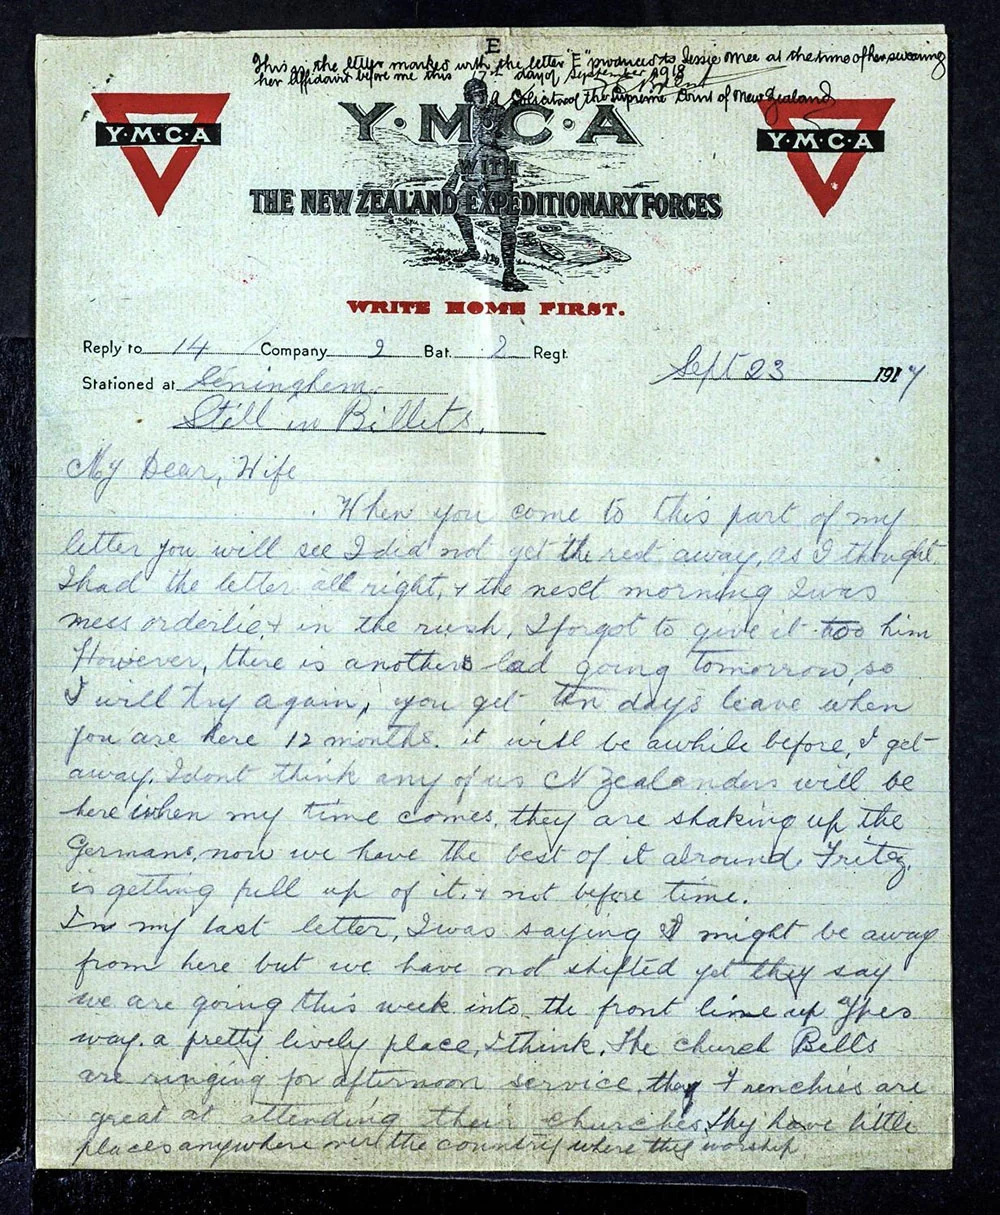 E
This is the letter marked with the letter "E" produced to Jessie Mee at the time of her swearing
her Affidavit before me this 17th day of September 1918
A Solicitor of the Supreme Court of New Zealand
Y·M·C·A
Y·M·C·A
Y·M·C·A
WITH
THE NEW ZEALAND EXPEDITIONARY FORCES
WRITE HOME FIRST.
Reply to 14 Company 2 Bat. 2 Regt.
Sept 23 1917
Stationed at Seninghem.
Still in Billets.
My Dear, Wife
When you come to this part of my
letter you will see I did not get the rest away, as I thought.
I had the letter all right, & the next morning I was
mess orderlie & in the rush, I forgot to give it too him
However, there is another lad going tomorrow, so
I will try again, you get ten days leave when
you are here 12 months. it will be awhile before, I get
away. I dont think any of us N Zealanders will be
here when my time comes, they are shaking up the
Germans, now we have the best of it alround. Fritz,
is getting full up of it. & not before time.
In my last letter, I was saying I might be away
from here but we have not shifted yet they say
we are going this week into the front line up Ypes
way. a pretty lively place, I think. The church Bells
are ringing for afternoon service. they Frenchies are
great at attending their churches. They have little
places anywhere over the country where they worship.